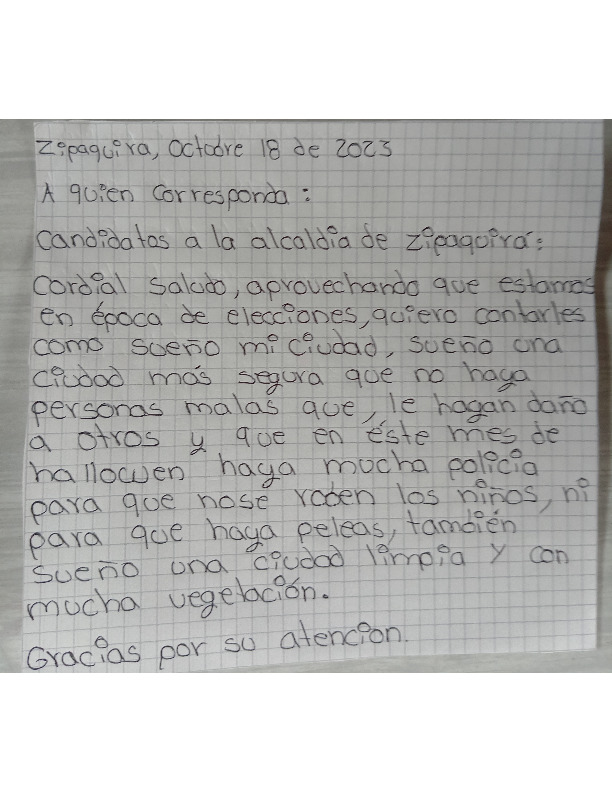 Zipaquira, Octodre 18 de 2023
A quien corresponda:
Candidatos a la alcaldia de zipaquirá:
Cordial saludo, aprovechando que estamos
en época de elecciones, quiero contarles
como sueño mi ciudad, sueño una
ciudad más segura que no haga
personas malas que, le hagan daño
a otros y que en éste mes de
hallowen haya mucha policia
para que nose roden los niños, ni
para que haya peleas, tamdién
sueño una ciudad limpia y con
mucha vegetación.
Gracias por su atencion.